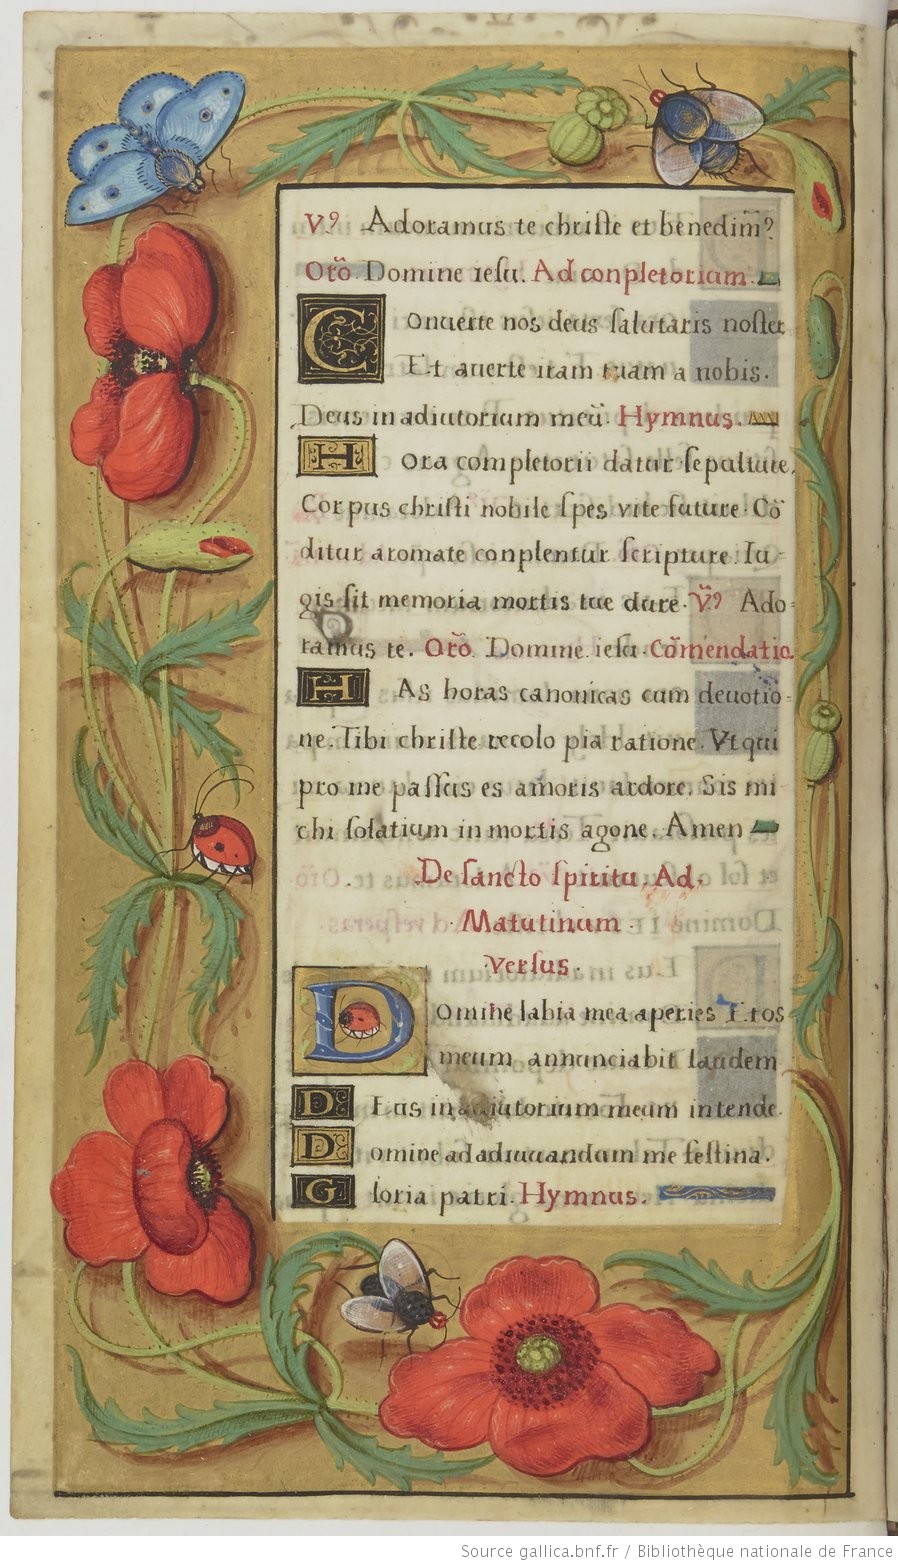 V⁹ Adoramus te christe et benedim̃⁹
Orõ Domine iesu. Ad conpletorium.
Conuerte nos deus salutaris noster
Et auerte iram tuam a nobis.
Deus in adiutorium meũ. Hymnus.
Hora completorii datur sepulture.
Corpus christi nobile spes vite future. Cõ
ditur aromate conplentur scripture. Iu-
gis sit memoria mortis tue dure. V̈⁹ Ado-
ramus te. Orõ. Domine iesu. Cõmendatio.
Has horas canonicas cum deuotio-
ne. Tibi christe recolo pia ratione. Vt qui
pro me passus es amoris ardore. Sis mi
chi solatium in mortis agone. Amen
De sancto spiritu. Ad.
Matutinum.
Versus.
Domine labia mea aperies Et os
meum annunciabit laudem
Deus in adiutorium meum intende.
Domine ad adiuuandum me festina.
Gloria patri. Hymnus.
Source gallica.bnf.fr / Bibliothèque nationale de France